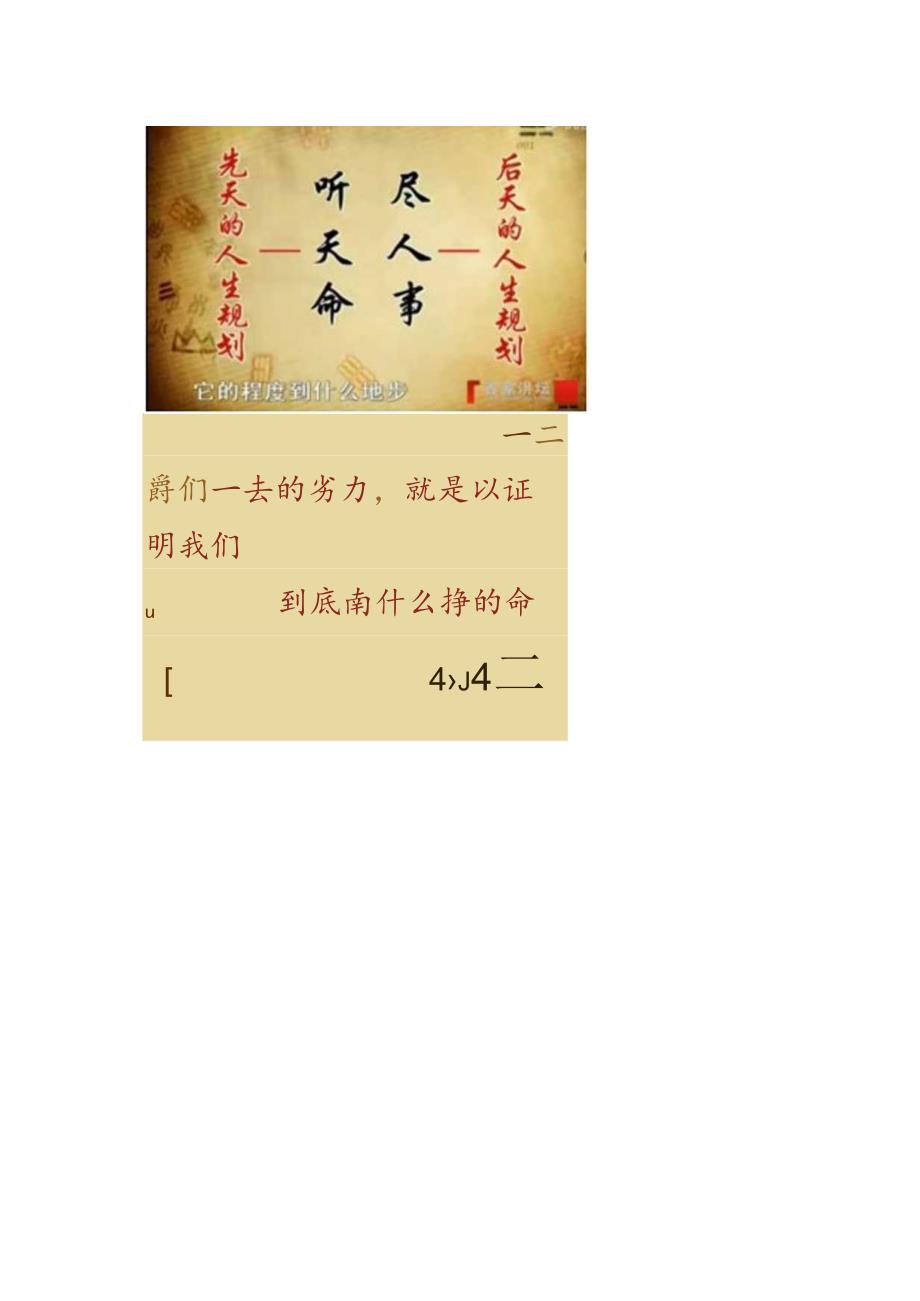 后天的人生规划
尽人事
听天命
先天的人生规划
001
它的程度到什么地步
百家讲坛
一二
爵们一去的劣力，就是以证
明我们
u 到底南什么挣的命
[ 4›J4二